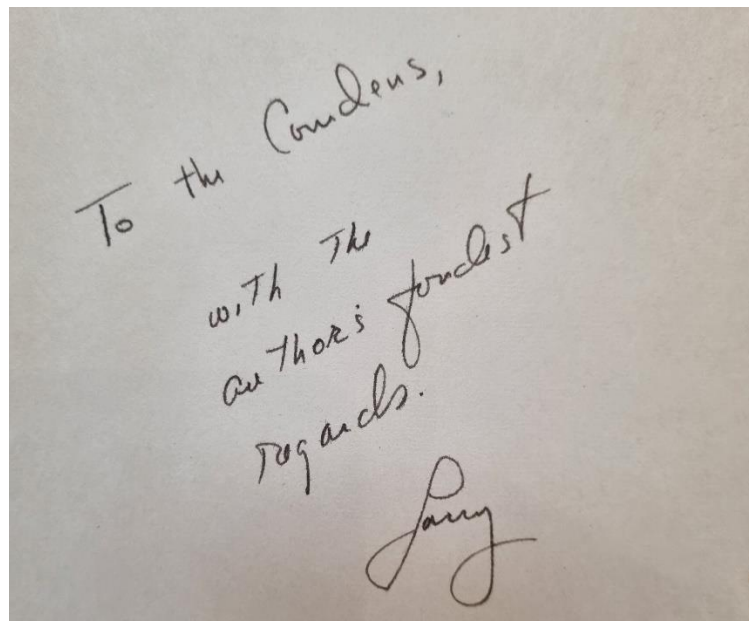 To the Comdens,
with The
author's fondest
regards.
Larry